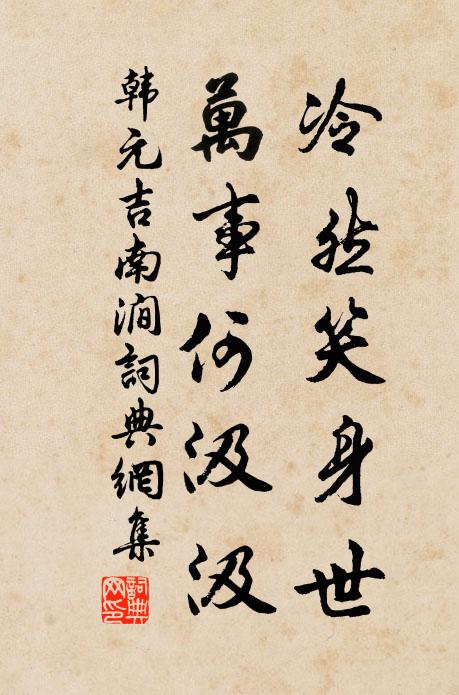 冷然笑身世
萬事何汲汲
韓元吉南澗詞典網集
詞典網印